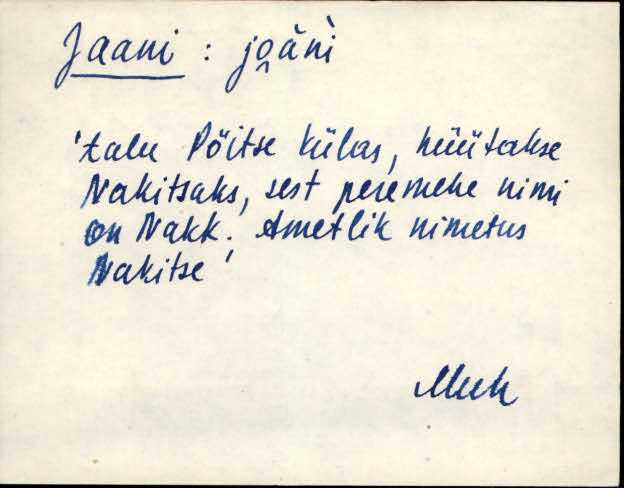 Jaani : jo̭ȧǹi
'talu Põitse külas, hüütakse
Nakitsaks, sest peremehe nimi
on Nakk. Ametlik nimetus
Nakitse'
Muh